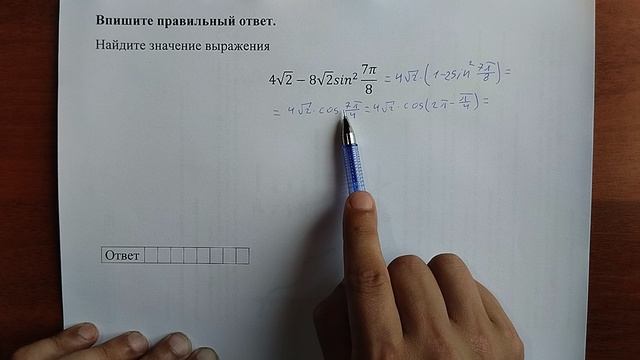 Впишите правильный ответ.
Найдите значение выражения
4√2 − 8√2sin² 7π/8 = 4√2·(1-2sin² 7π/8) =
= 4√2·cos 7π/4 = 4√2·cos(2π - π/4) =
Ответ